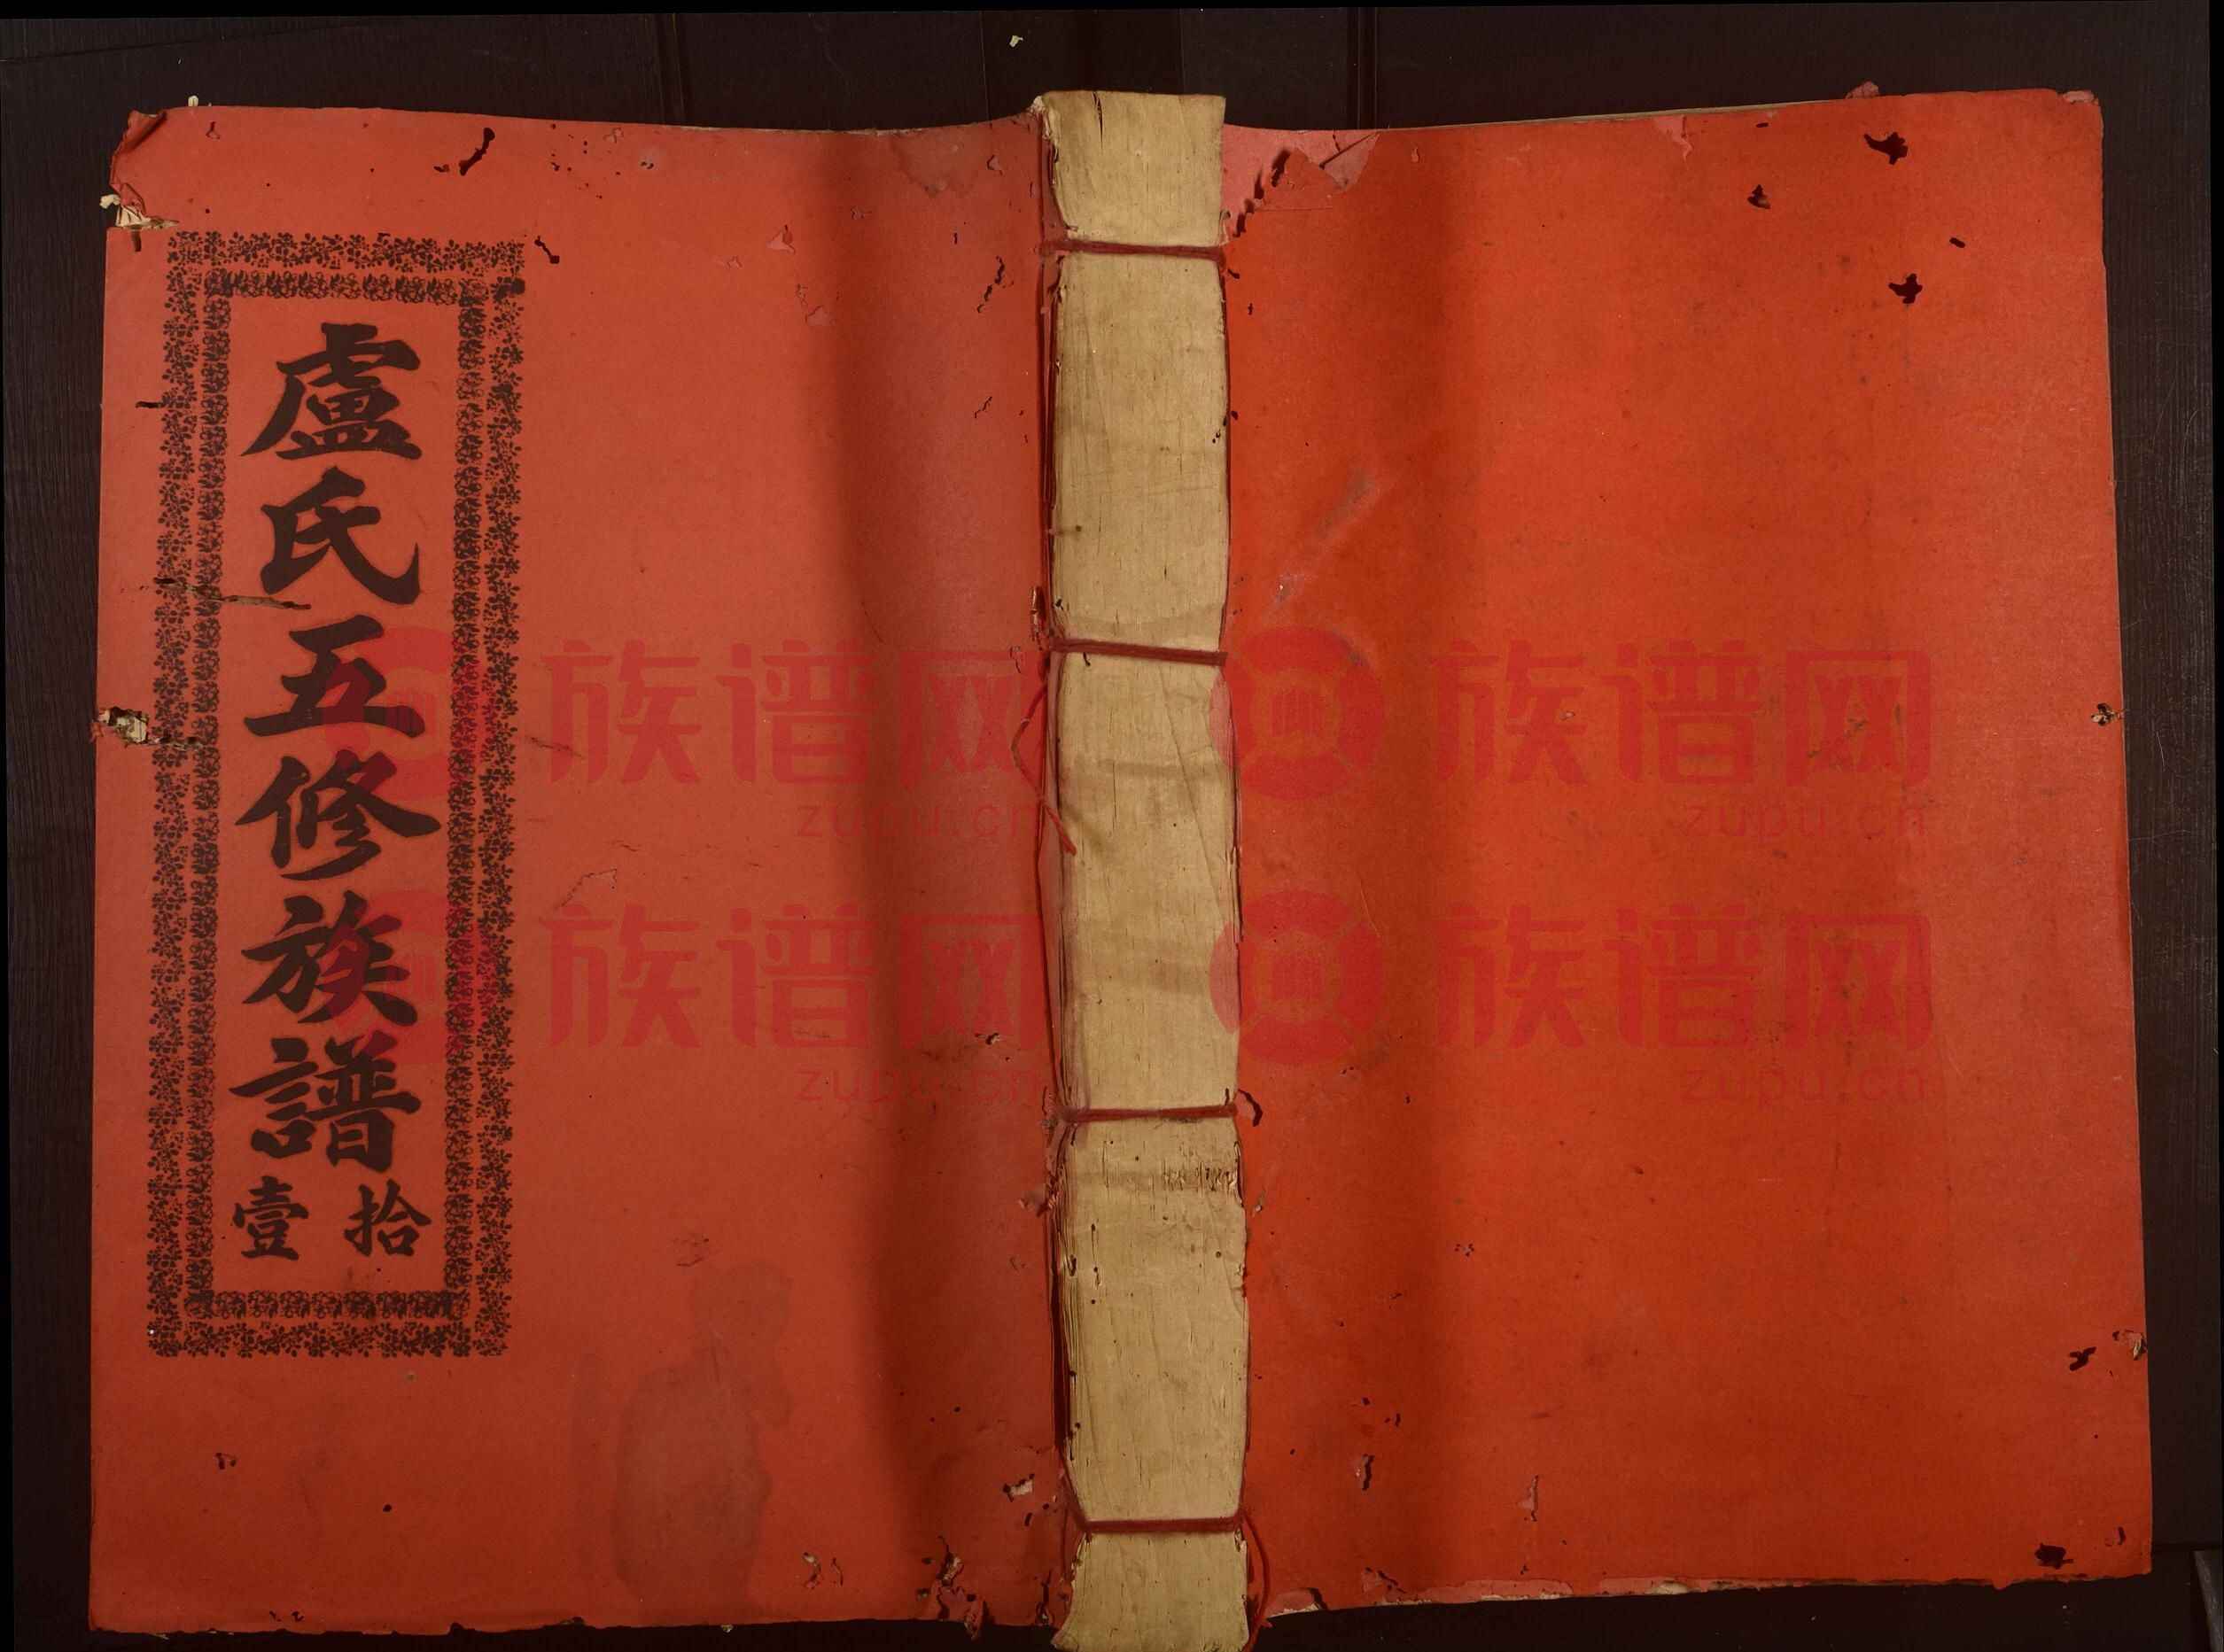 盧氏五修族譜
拾壹
族谱网 族谱网
zupu.cn zupu.cn
族谱网 族谱网
zupu.cn zupu.cn